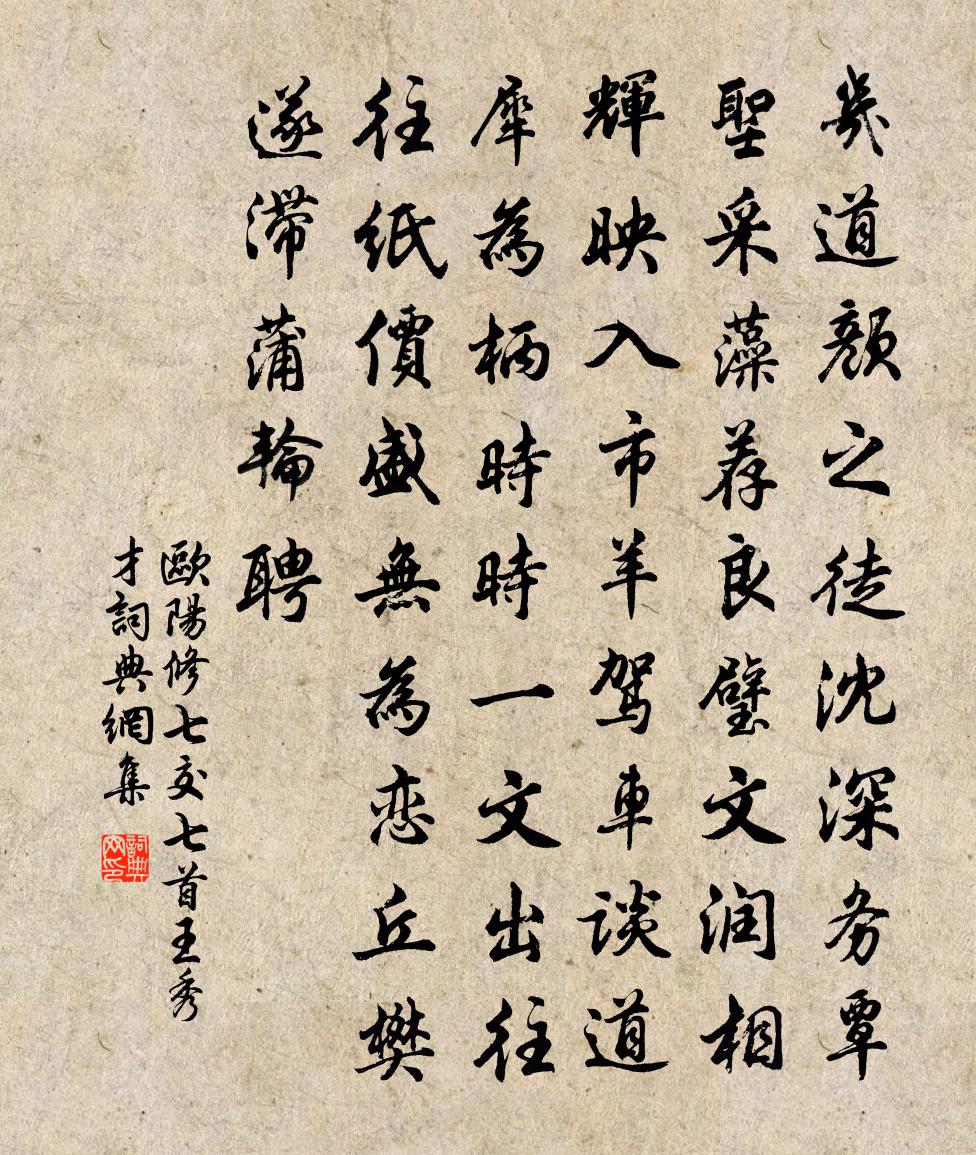 幾道顏之徒沈深务覃
聖采藻荐良璧文润相
輝映入市羊駕車談道
犀為柄時時一文出往
往紙價盛無為恋丘樊
遂滞蒲輪聘
歐陽修七交七首王秀
才詞典網集
詞典网印